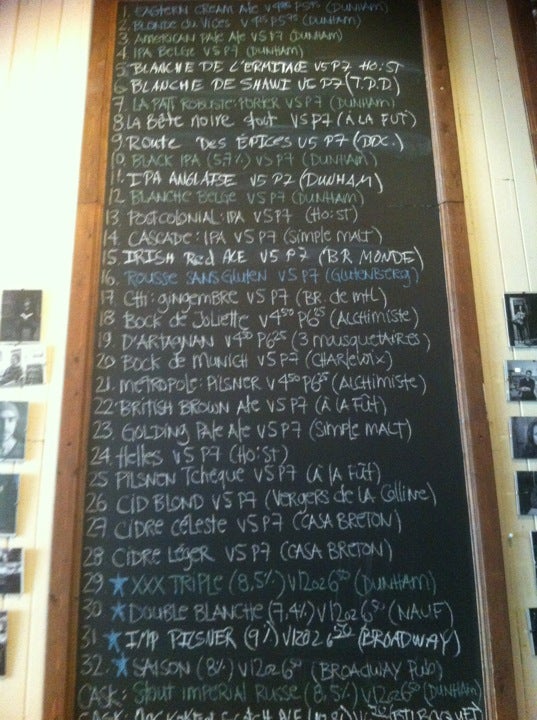 1. EASTERN CREAM ALE V4.95 P5.75 (DUNHAM)
2. BLONDE DU VICES V4.95 P5.75 (DUNHAM)
3. AMERICAN PALE ALE V5 P7 (DUNHAM)
4. IPA BELGE V5 P7 (DUNHAM)
5. BLANCHE DE L'ERMITAGE V5 P7 HO:ST
6. BLANCHE DE SHAWI V5 P7 (T.D.D)
7. LA PATT ROBUSTE: PORTER V5 P7 (DUNHAM)
8. LA BÊTE NOIRE STOUT V5 P7 (À LA FÛT)
9. ROUTE DES ÉPICES V5 P7 (DDC.)
10. BLACK IPA (5.7%) V5 P7 (DUNHAM)
11. IPA ANGLAISE V5 P7 (DUNHAM)
12. BLANCHE BELGE V5 P7 (DUNHAM)
13. POSTCOLONIAL: IPA V5 P7 (HO:ST)
14. CASCADE: IPA V5 P7 (SIMPLE MALT)
15. IRISH Red ALE V5 P7 (B.R. MONDE)
16. ROUSSE SANS GLUTEN V5 P7 (GLUTENBERG)
17. CHI: GINGEMBRE V5 P7 (BR. de MTL)
18. BOCK de JOLIETTE V4.50 P6.25 (ALCHIMISTE)
19. D'ARTAGNAN V4.50 P6.25 (3 MOUSQUETAIRES)
20. BOCK de MUNICH V5 P7 (CHARLEVOIX)
21. METROPOLE: PILSNER V4.50 P6.25 (ALCHIMISTE)
22. BRITISH BROWN ALE V5 P7 (À LA FÛT)
23. GOLDING PALE ALE V5 P7 (SIMPLE MALT)
24. Helles V5 P7 (HO:ST)
25. PILSNEN TCHÈQUE V5 P7 (À LA FÛT)
26. CID BLOND V5 P7 (VERGERS DE LA COLLINE)
27. CIDRE CÉLESTE V5 P7 (CASA BRETON)
28. CIDRE LÉGER V5 P7 (CASA BRETON)
29. ★ XXX TRIPLE (8.5%) V12oz 6.50 (DUNHAM)
30. ★ DOUBLE BLANCHE (7.4%) V12oz 6.50 (NAUF)
31. ★ IMP PILSNER (9%) V12oz 6.50 (BROADWAY)
32. ★ SAISON (8%) V12oz 6.50 (BROADWAY PUB)
CASK: STOUT IMPERIAL RUSSE (8,5%) V12oz 6.50 (DUNHAM)
CASK: